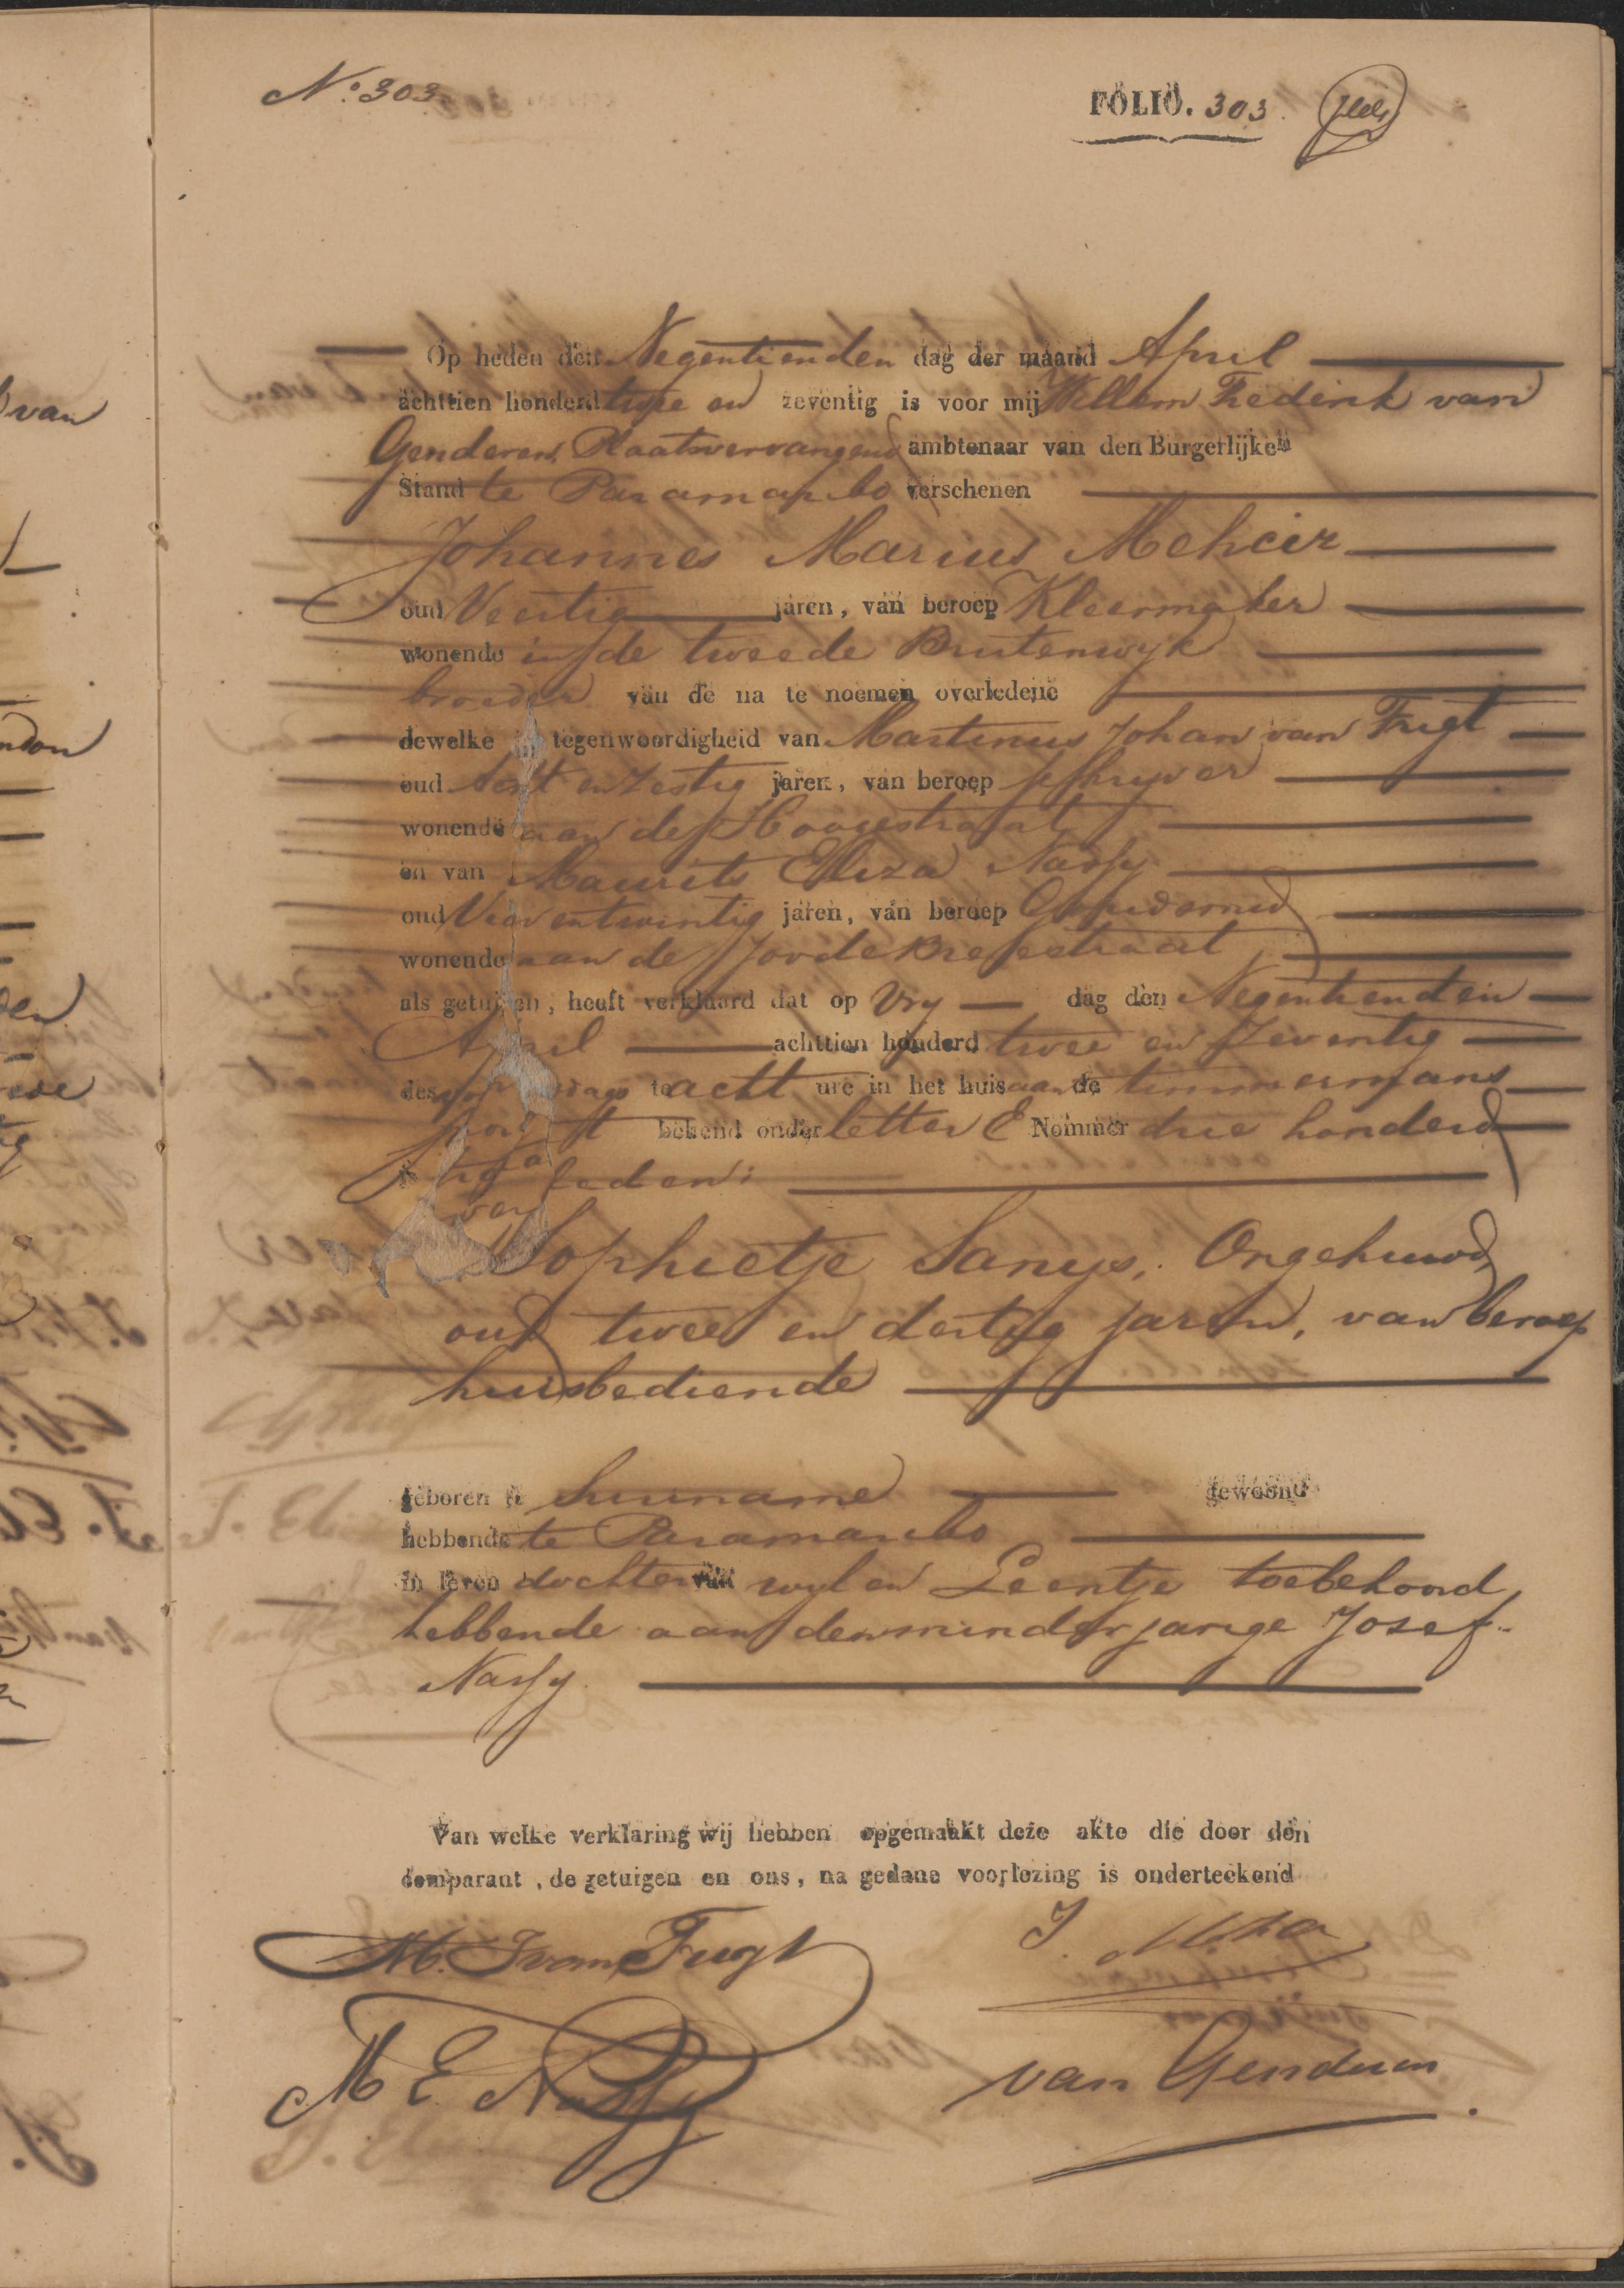 No. 303
FOLIO. 303.
Op heden den Negentienden dag der maand April
achttien honderd twee en zeventig is voor mij Willem Frederik van
Genderen, Plaatsvervangend ambtenaar van den Burgerlijken
Stand te Paramaribo verschenen
Johannes Marius Mehcir
oud Veertig jaren, van beroep Kleermaker
wonende in de tweede Buitenwyk
broeder van de na te noemen overledene
dewelke in tegenwoordigheid van Martinus Johan van Frugt
oud acht en zestig jaren, van beroep schryver
wonende aan de Hoogestraat
en van Maurits Eliza Nassy
oud Vier en twintig jaren, van beroep Goudsmid
wonende aan de Joode Breestraat
als getuigen, heeft verklaard dat op Vry dag den Negentienden
April achttien honderd twee en zeventig
des dags te acht ure in het huis aan de timmermans
bekend onder letter E Nommer drie honderd
leden:
Sophietje Sanys, Ongehuwd,
oud twee en dertig jaren, van beroep
huisbediende
geboren te Suriname gewoond
hebbende te Paramaribo
in leven dochter van wylen Leentje toebehoord
hebbende aan den minderjarige Josef
Nassy
Van welke verklaring wij hebben opgemaakt deze akte die door den
comparant, de getuigen en ons, na gedane voorlezing is onderteekend
M. J van Frugt
J.
M E Nassy
van Genderen
van